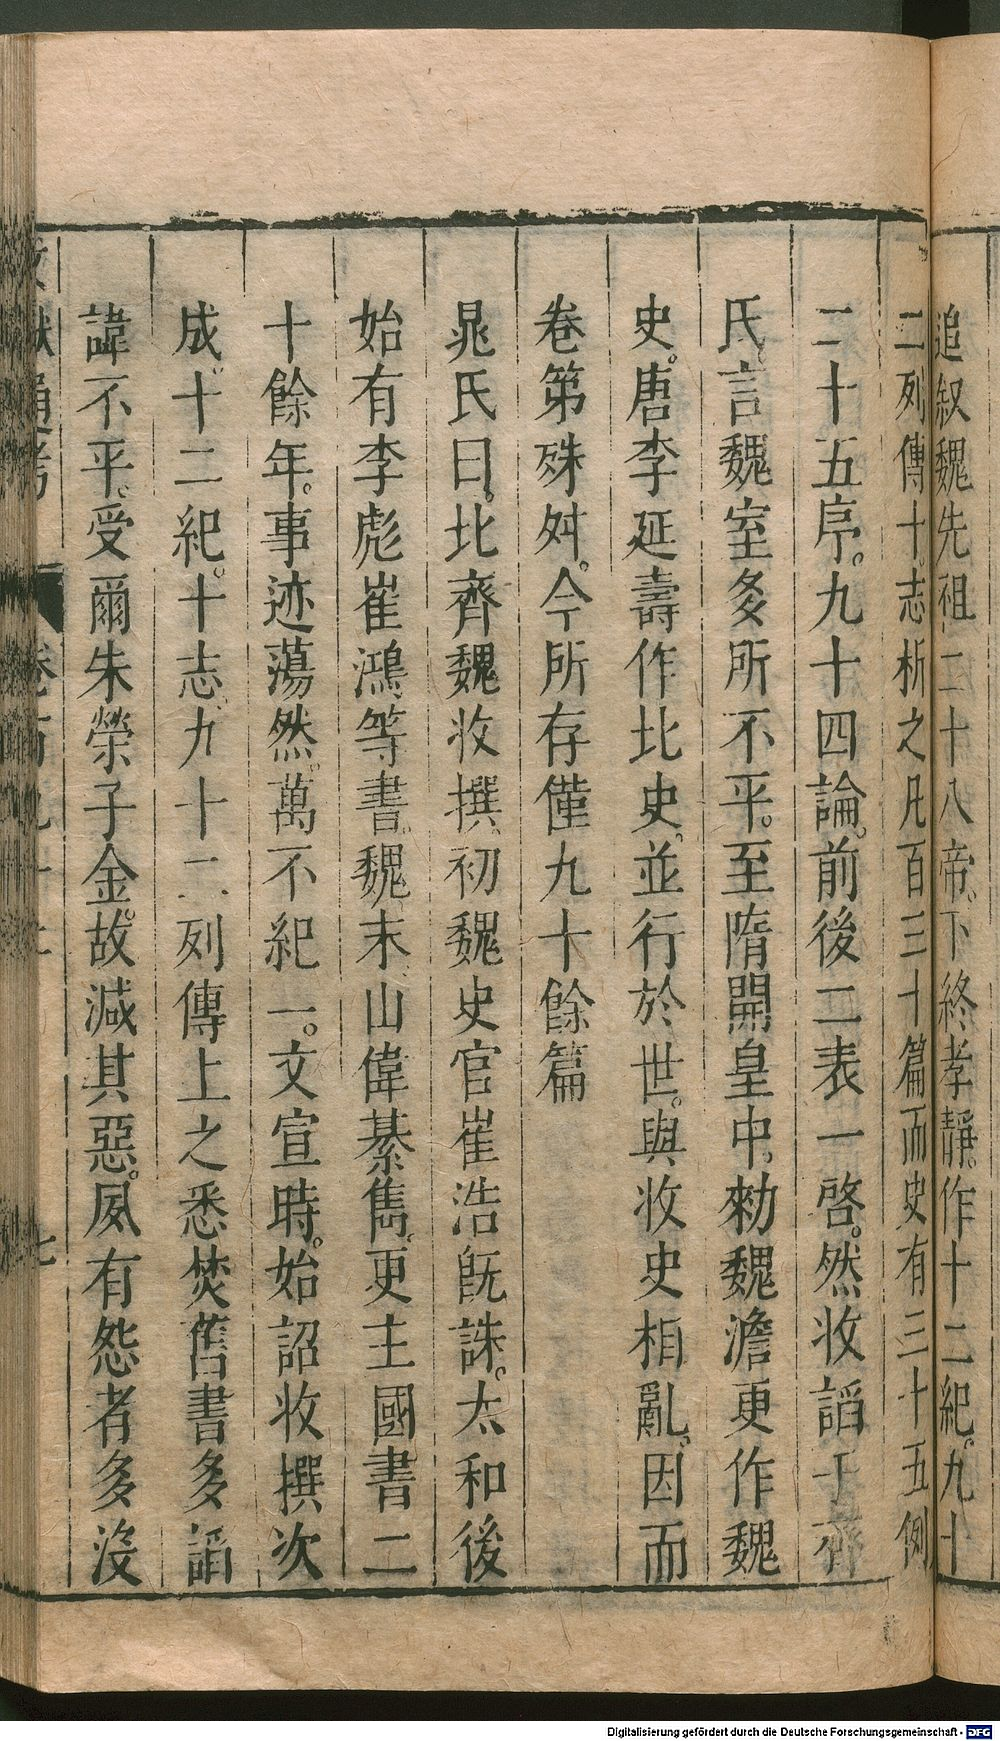 追叙魏先祖二十八帝。下終孝靜。作十二紀。九十
二列傳十。志析之凡百三十篇而史有三十五例
二十五序。九十四論。前後二表一啓。然收諂于齊
氏言魏室多所不平。至隋開皇中。勑魏澹更作魏
史。唐李延壽作北史。並行於世。與收史相亂。因而
卷第殊舛。今所存僅九十餘篇
晁氏曰。北齊魏收撰。初魏史官崔浩既誅。太和後
始有李彪崔鴻等書。魏末山偉綦雋。更主國書二
十餘年。事迹蕩然。萬不紀一。文宣時。始詔收撰次
成。十二紀。十志。九十二列傳上之悉焚舊書多諂
諱不平。受爾朱榮子金。故減其惡。夙有怨者多沒
文獻通考 卷百九十二 七
Digitalisierung gefördert durch die Deutsche Forschungsgemeinschaft - DFG